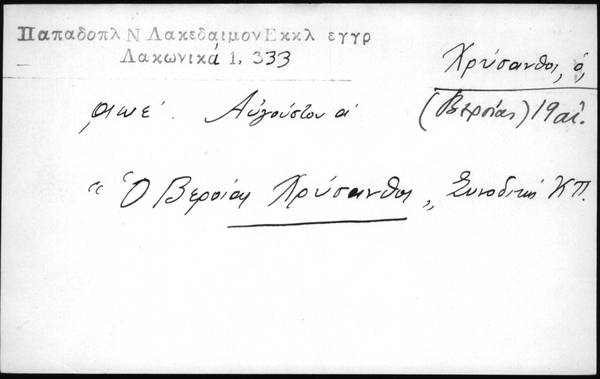 Παπαδοπλ Ν Λακεδαιμον Εκκλ εγγρ
Λακωνικά 1, 333
Χρύσανθος, ὁ,
͵αωε΄. Αὐγούστου α΄
(Βεροίας) 19 αἰ.
"Ὁ Βεροίας Χρύσανθος", Συνοδικὴ ΚΠ.